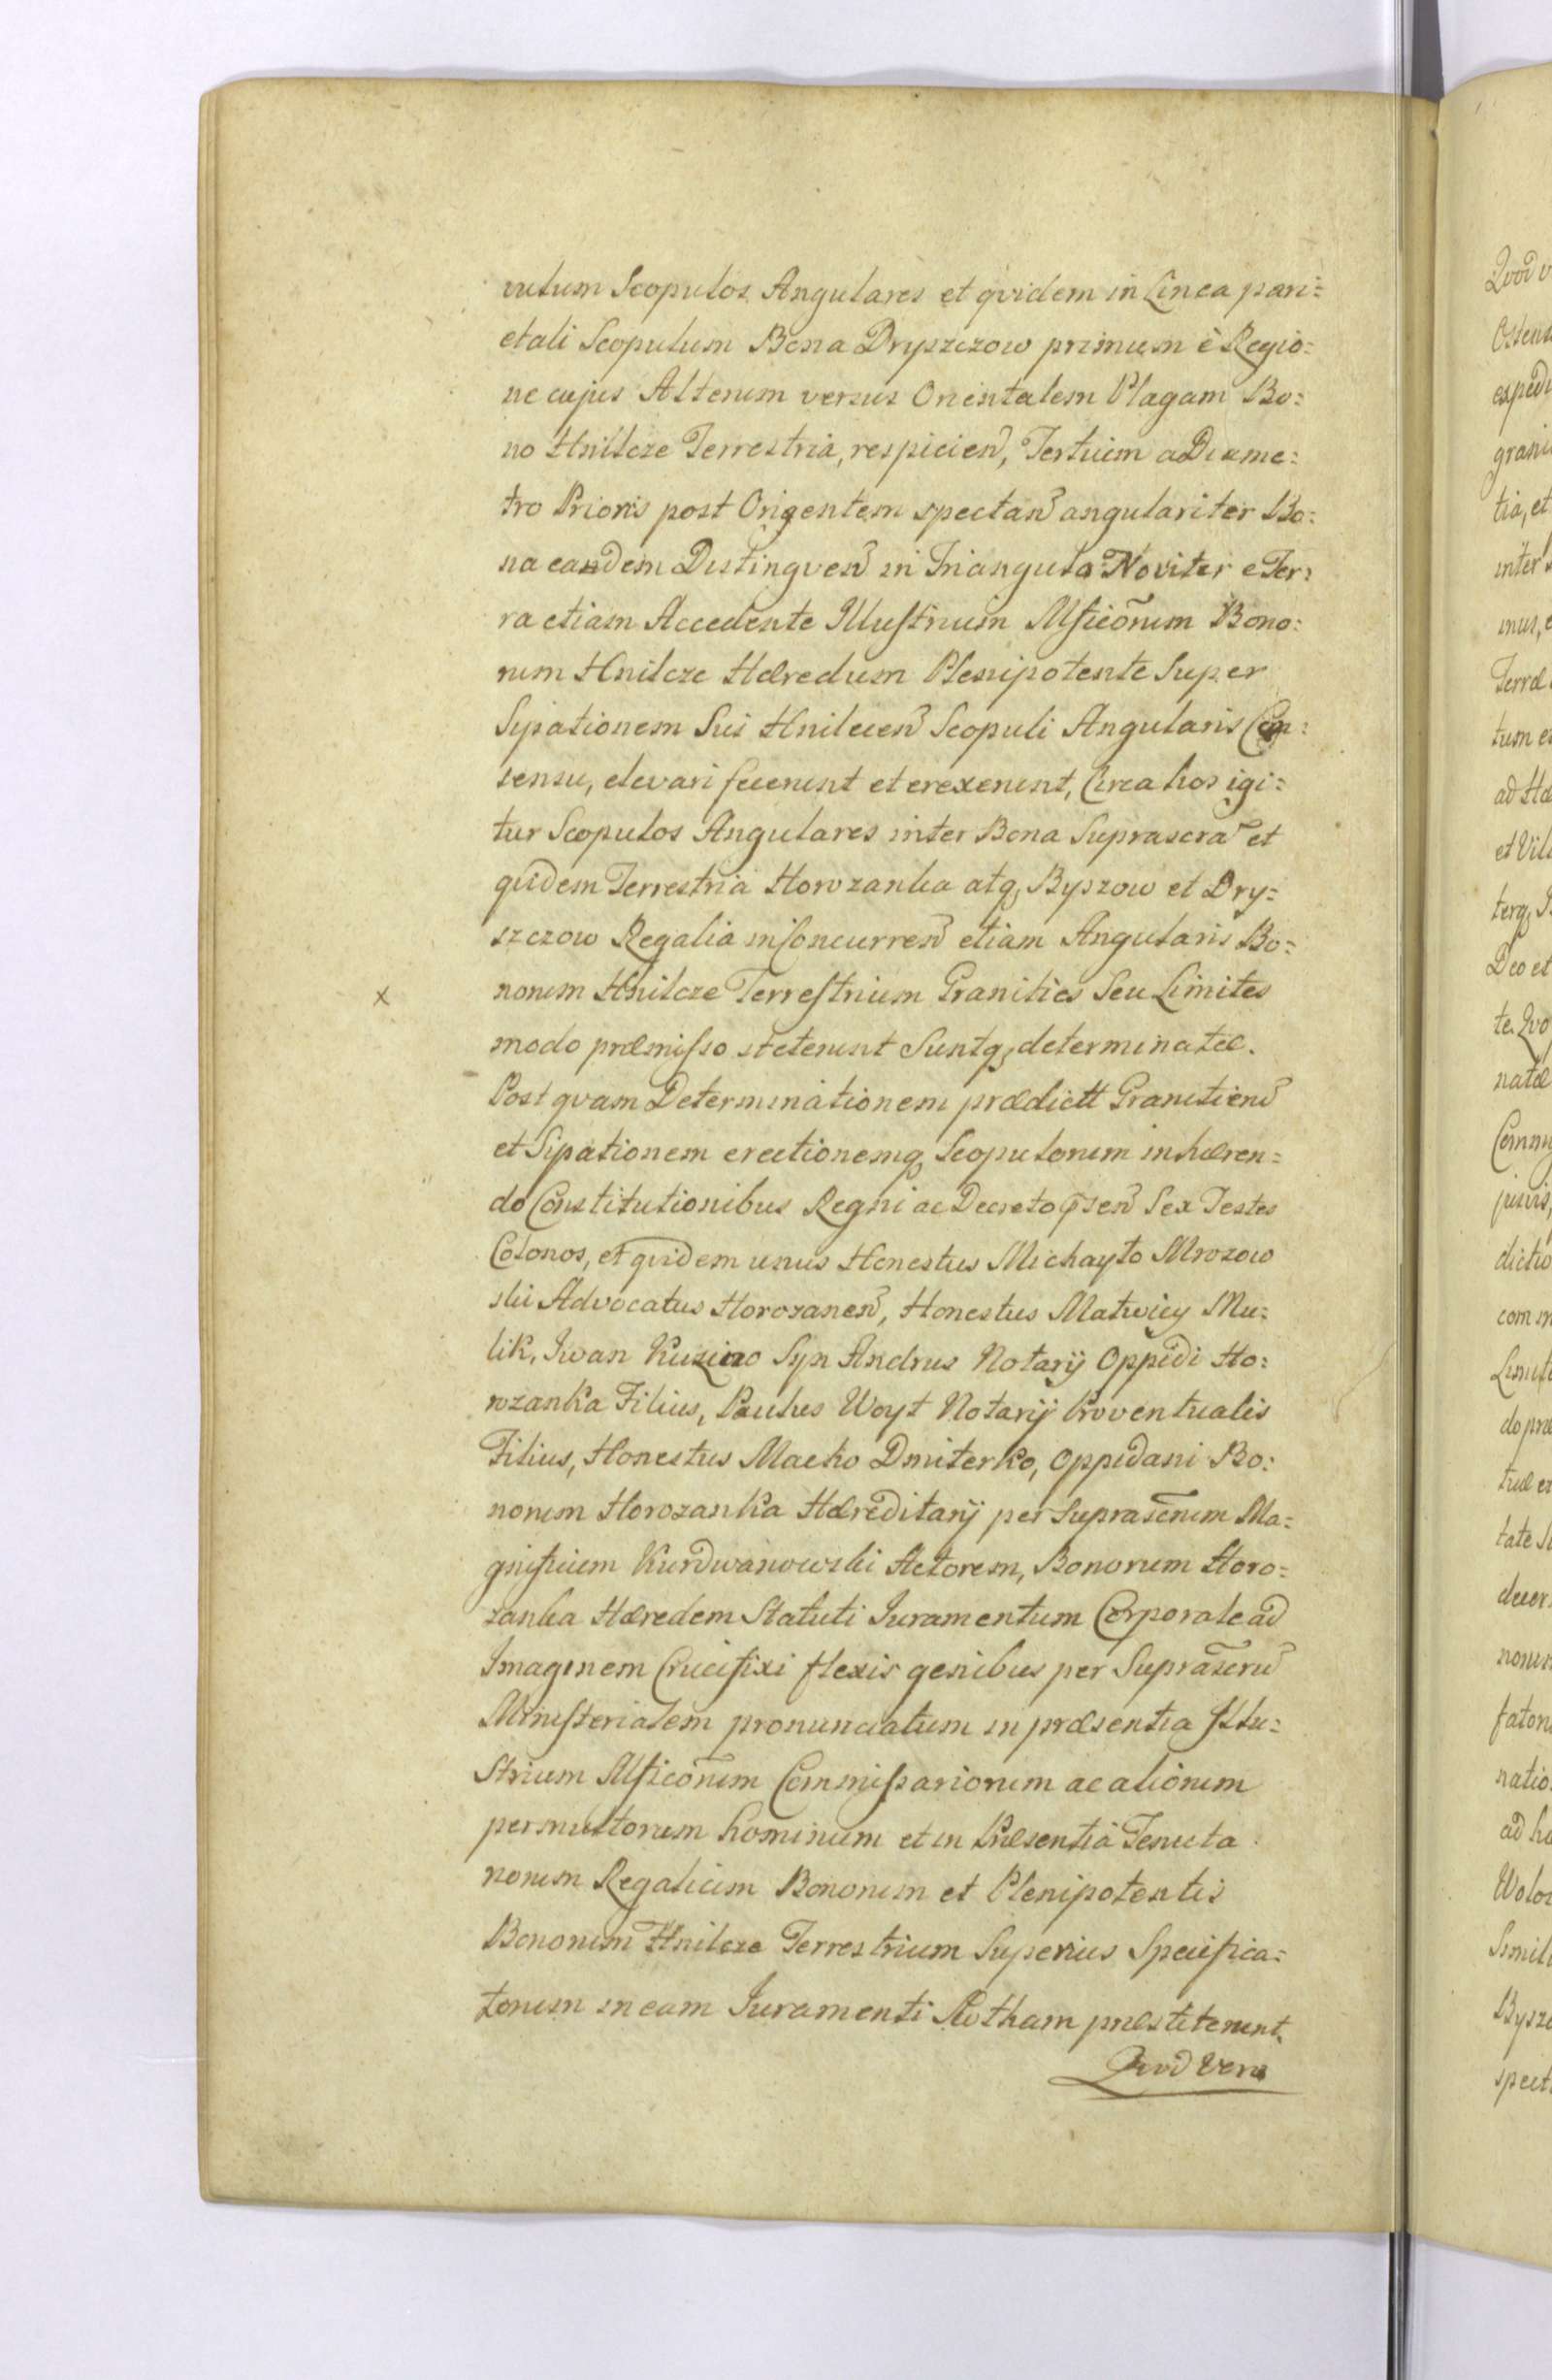 vulum Scopulos Angulares et qvidem in Linea pari=
etali Scopulum Bona Dryszczow primum è Regio=
ne cujus Alterum versus Orientalem Plagam Bo=
no Hnilcze Terrestria, respicien, Tertium a Diame=
tro Prioris post Origentem spectan angulariter Bo=
na eandem Distingven in Triangulo Noviter e Ter=
ra etiam Accedente Illustrium Mficorum Bono=
rum Hnilcze Hæredum Plenipotente Super
Sypationem Sui Hnilecen Scopuli Angularis Con=
sensu, elevari fecerunt et erexerunt, Circa hos igi=
tur Scopulos Angulares inter Bona Suprascra et
qvidem Terrestria Horozanka atq Byszow et Dry=
szczow Regalia in Concurren etiam Angularis Bo=
norum Hnilcze Terrestrium Granities Seu Limites
x
modo præmisso steterunt Suntq determinatæ.
Post qvam Determinationem prædictt Granitien
et Sypationem erectionemq Scopulorum inhæren=
do Constitutionibus Regni ac Decreto Sex Testes
Colonos, et qvidem unus Honestus Michayło Mrozow
ski Advocatus Horozanen, Honestus Matwiey Mu=
lik, Iwan Syn Andrus Notarij Oppidi Ho=
rozanka Filius, Paulus Woyt Notarij Proventualis
Filius, Honestus Macko Dmiterko, Oppidani Bo=
norum Horozanka Hæreditarij per Suprascrum Ma=
gnificum Kurdwanowski Actorem, Bonorum Horo=
zanka Hæredem Statuti Iuramentum Corporale ad
Imaginem Crucifixi flexis genibus per Suprascru
Ministerialem pronunciatum in præsentia Illu=
strium Mficorum Commissariorum ac aliorum
permultorum hominum et in Præsentia Tenuta
riorum Regalium Bonorum et Plenipotentis
Bonorum Hnilcze Terrestrium Superius Specifica=
torum in eam Iuramenti Rotham præstiterunt.
Qvod Vero